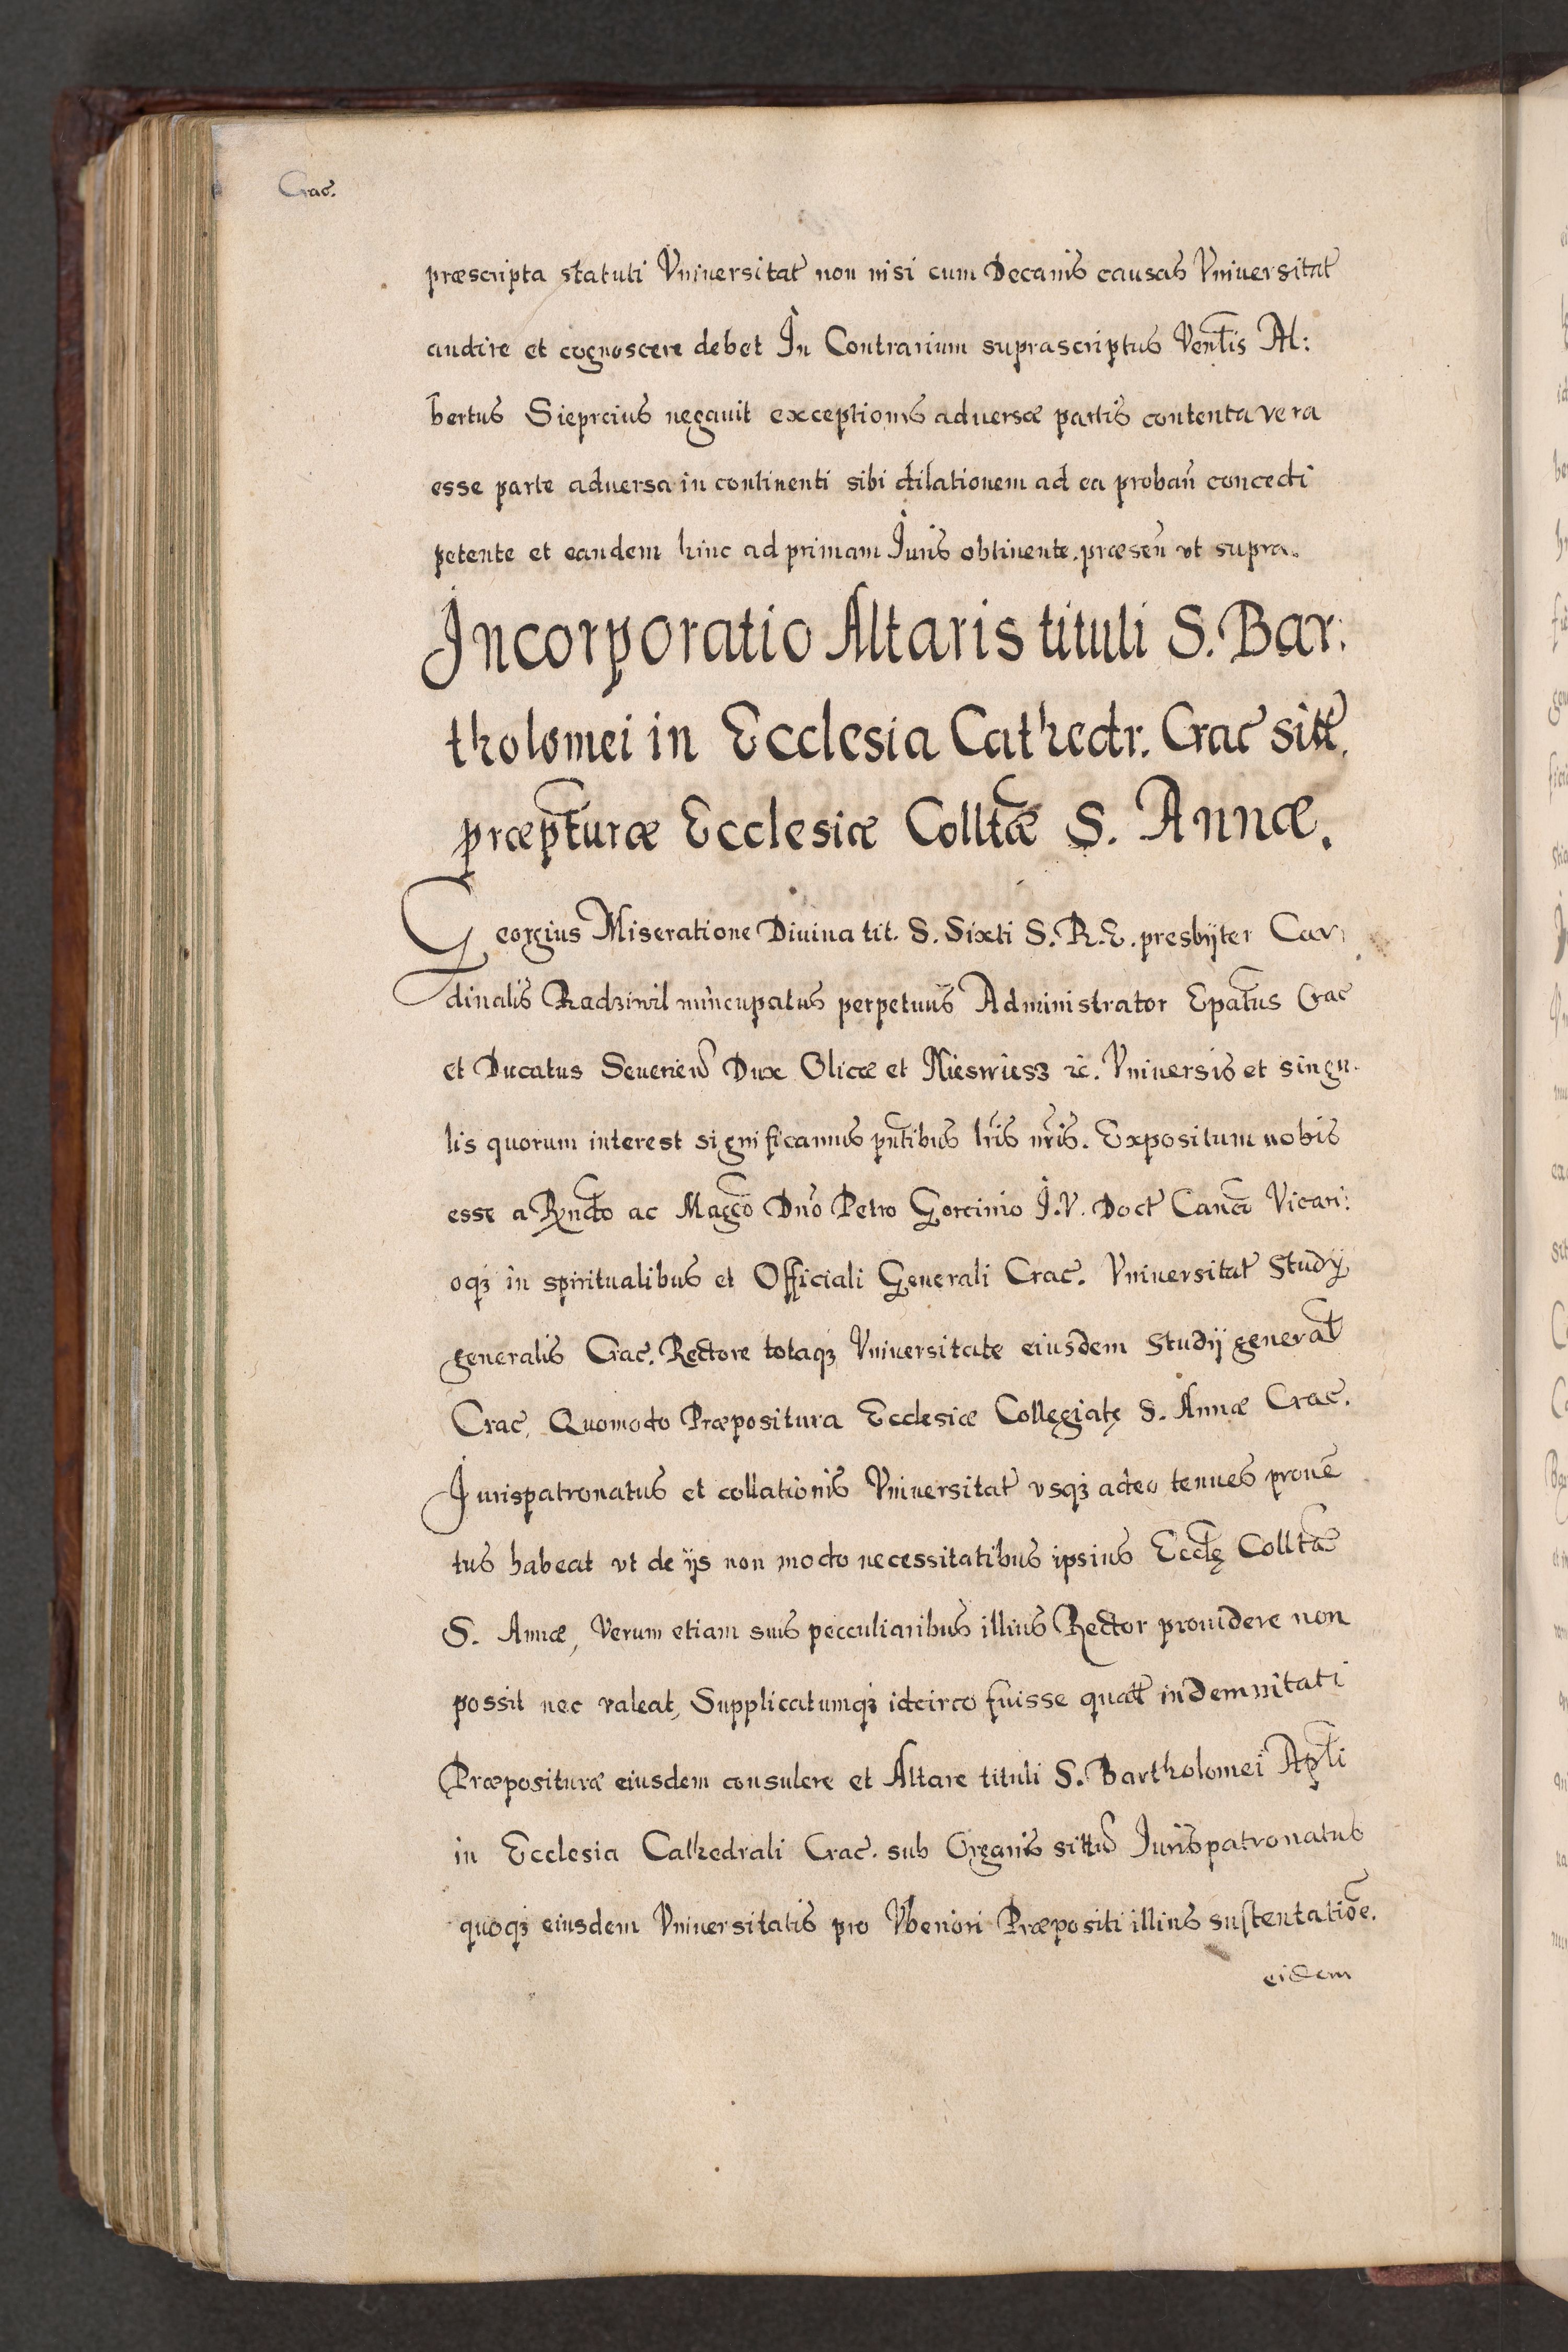 Crac̃.
præscripta statuti Vniversitat̃ non nisi cum Decanis causas Vniversitat̃
audire et cognoscere debet In Contrarium suprascriptus Venl̃is Al:
bertus Sieprcius negauit exceptionis aduersæ partis contenta vera
esse parte aduersa in continenti sibi dilationem ad ea proban̄ concedi
petente et eandem hinc ad primam Juris obtinente. præsen̄ vt supra.
Incorporatio Altaris tituli S. Bar:
tholomei in Ecclesia Cathedr. Crac̃ sitt̃.
præpt̃uræ Ecclesiæ Collt̃æ S. Annæ.
Georgius Miseratione Diuina tit. S. Sixti S. R. E. presbÿter Car:
dinalis Radziwil nuncupatus perpetuus Administrator Epat̃us Crac̃
et Ducatus Seuerieñ Dux Olicæ et Nieswiesz ꝛc. Vniversis et singu.
lis quorum interest significamus pñtibus lr̃is nr̃is. Expositum nobis
esse a Rñdo ac Magc̃o Dño Petro Gorcinio J. V. Doct̃ Canc̃o Vicari:
oqꝫ in spiritualibus et Officiali Generali Crac̃. Vniversitat̃ Studÿ
generalis Crac̃. Rectore totaqꝫ Vniversitate eiusdem Studÿ general̃
Crac̃, Quomodo Præpositura Ecclesiæ Collegiatę S. Annæ Crac̃.
Jurispatronatus et collationis Vniversitat̃ vsqꝫ adeo tenues prouẽ
tus habeat vt de ÿs non modo necessitatibus ipsius Eccl̃ę Collt̃æ
S. Annæ, Verum etiam suis pecculiaribus illius Rector prouidere non
possit nec valeat, Supplicatumqꝫ idcirco fuisse quatt̃ indemnitati
Præposituræ eiusdem consulere et Altare tituli S. Bartholomei Apl̃i
in Ecclesia Cathedrali Crac̃. sub Organis sittũ Jurispatronatus
quoqꝫ eiusdem Vniversitatis pro Vberiori Præpositi illius sustentatiõe.
eidem